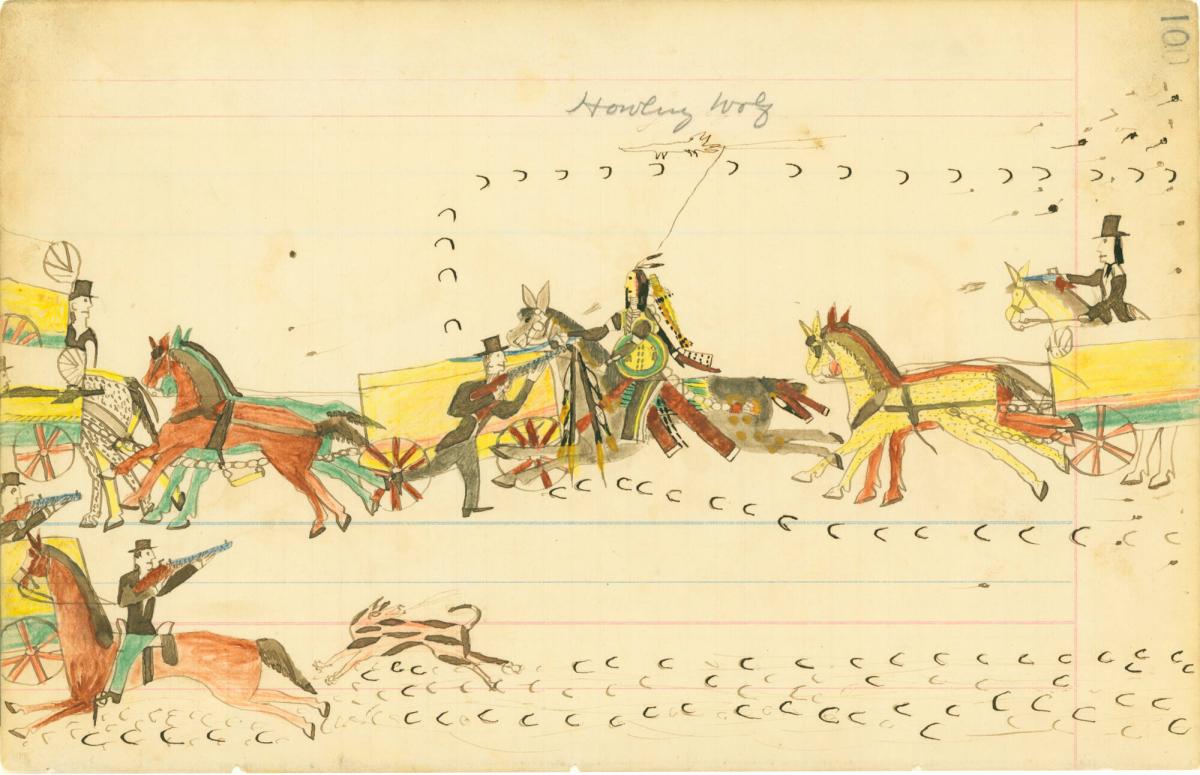 100
Howling Wolf